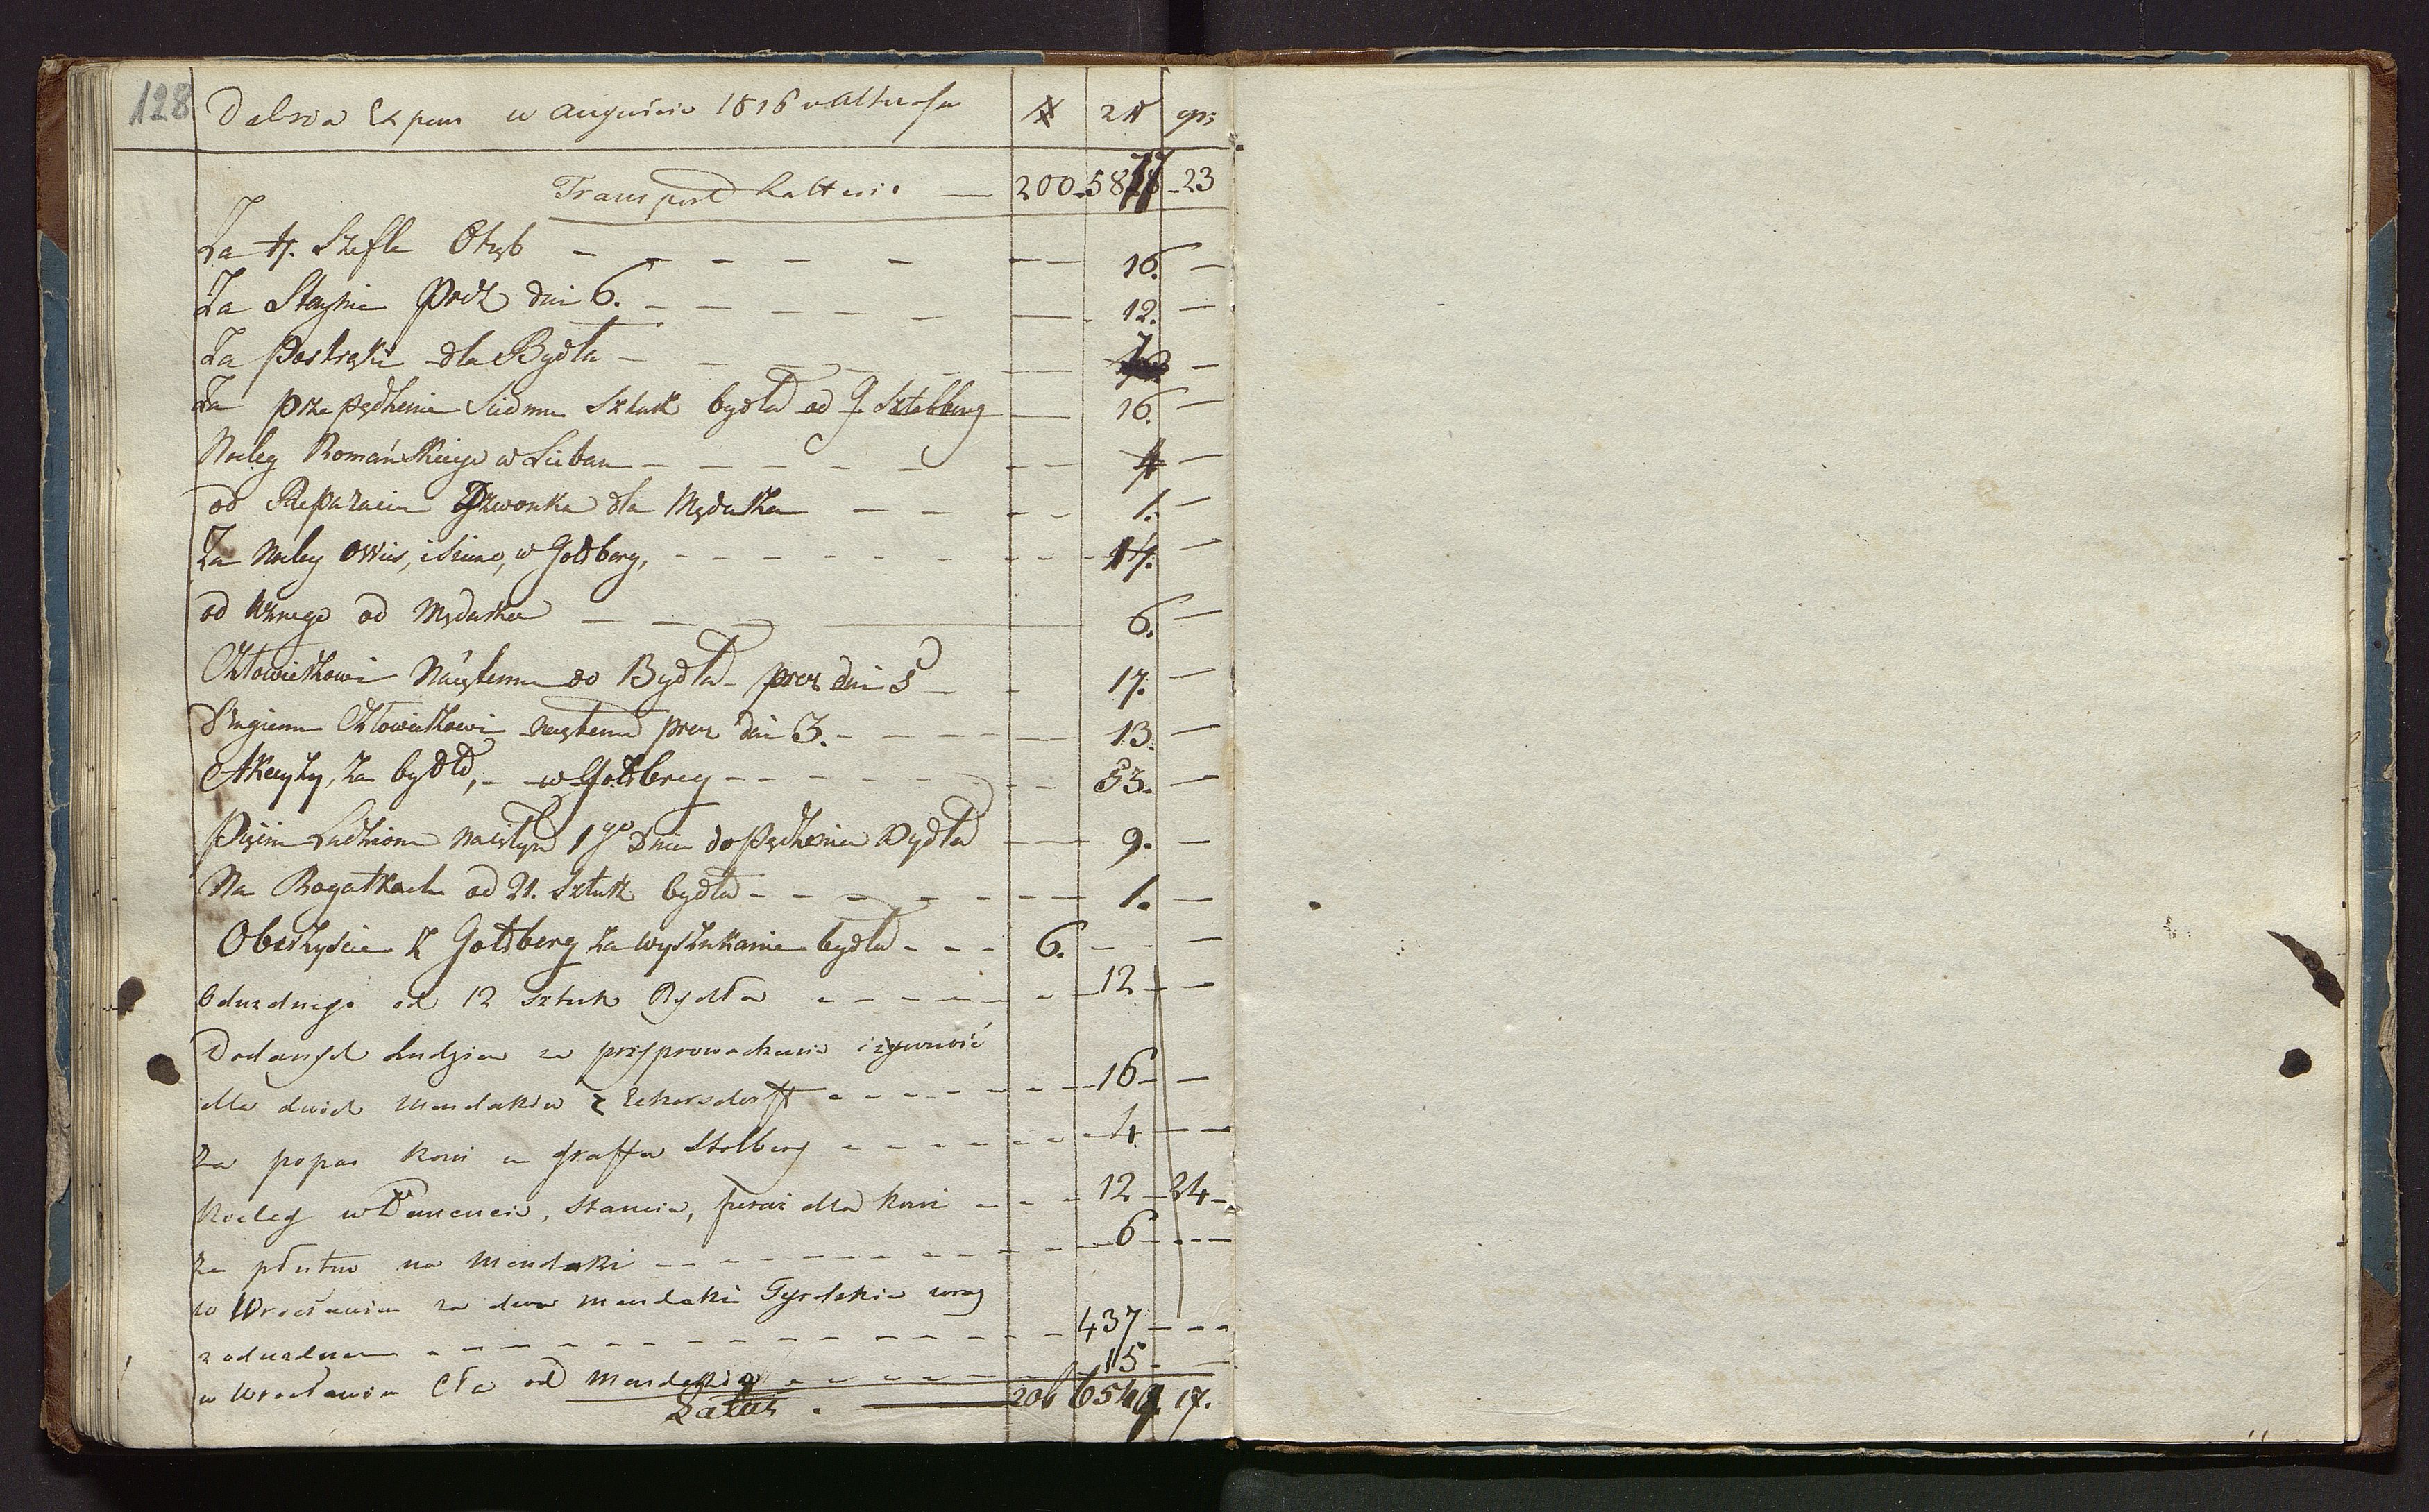 128 Dalsza Expens w Auguście 1816 w Altwaser # zł gr:
Transport Latteris — 200 - 5877 - 23
Za 4. Szefle Otrąb - - - - - — 16. —
Za Stajnie Przez dni 6. - - - - - — 12. —
Za Postrąki dla Bydła - - - - — 7 —
Za przepędzenie Siedmu Sztuk bydła od G. Sztolberg — 16. —
Nocleg Romańskiego w Liebau - - - - - - - 4 —
od Reparacii Dzwonka dla Mędaka - - - - 1. —
Za Nocleg Owies, i Siano, w Goldberg, - - - - - - - - 14. —
od Rznego od Mędaka - - - — 6. —
Człowiekowi Najętemu do Bydła przez dni 5 - - 17. —
Drugiemu Człowiekowi najętemu przez dni 3. - - - - — 13. —
Akcyzy, za bydło, - w Goldberg - - - - - - - 53. —
Pięciu Ludziom najętym 1go Dnia do Pędzenia Bydła - - 9. —
Na Rogatkach od 21. Sztuk bydła - - - - - - - - 1. —
Oberżyscie z Goldberg za wyszukanie bydła - - - 6. - - —
Odważnego od 12 sztuk Bydła - - - - - - - 12 - —
Dodanych Ludziom za przyprowadzenie i żywność
dla dwóch Mendaków z Eckersdorff - - - - - - - - 16 - —
Za popas koni u Graffa Stolberg - - - - - - - - 4 - —
Nocleg w , Stancia, furaż dla koni - - - - 12 - 24 -
Za płutno na Mendaki - - - - - - - - - - 6 - - - -
w Wrocławiu za dwa Mendaki Tyrolskie wraz
z odważnem - - - - - - - - - - - - - - 437 - - -
w Wrocławiu Cła od Mendaków - - - - - - 15 - —
Latus . — 206 6549. 17.